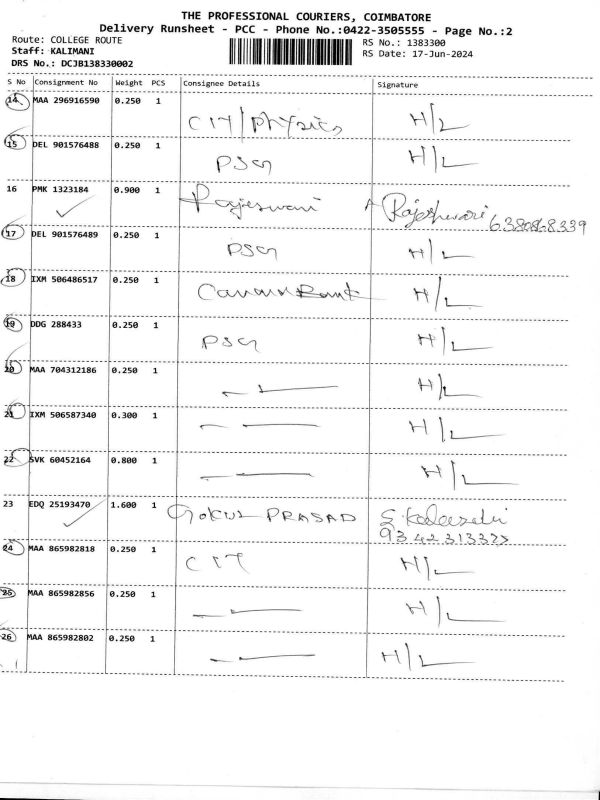 THE PROFESSIONAL COURIERS, COIMBATORE
Delivery Runsheet - PCC - Phone No.:0422-3505555 - Page No.:2
Route: COLLEGE ROUTE RS No.: 1383300
Staff: KALIMANI RS Date: 17-Jun-2024
DRS No.: DCJB138330002
S No Consignment No Weight PCS Consignee Details Signature
14 MAA 296916590 0.250 1 CIT/Physics H/L
15 DEL 901576488 0.250 1 PSG H/L
16 PMK 1323184 0.900 1 Rajeswari Rajeshwari
17 DEL 901576489 0.250 1 PSG H/L
18 IXM 506486517 0.250 1 Canara Bank H/L
19 DDG 288433 0.250 1 PSG H/L
20 MAA 704312186 0.250 1 H/L
21 IXM 506587340 0.300 1 H/L
22 SVK 60452164 0.800 1 H/L
23 EDQ 25193470 1.600 1 GOKUL PRASAD
24 MAA 865982818 0.250 1 CIT H/L
25 MAA 865982856 0.250 1 H/L
26 MAA 865982802 0.250 1 H/L